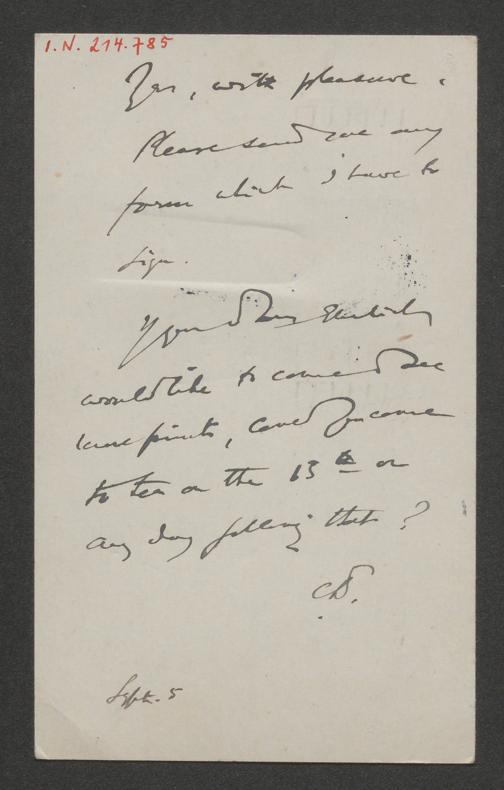 I.N. 214.785
Yes, with pleasure.
Please send me any
form which I have to
sign.
If you & Miss
would like to come & see
some prints, could you come
to tea on the 13th or
any day following that?
CD.
Sept. 5